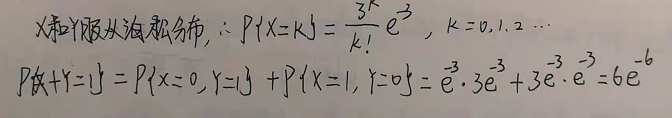 X和Y服从泊松分布, ∴ P{X=K} = 3^K/K! e^-3, K=0,1,2…
P{X+Y=1} = P{X=0,Y=1} + P{X=1,Y=0} = e^-3·3e^-3+3e^-3·e^-3=6e^-6